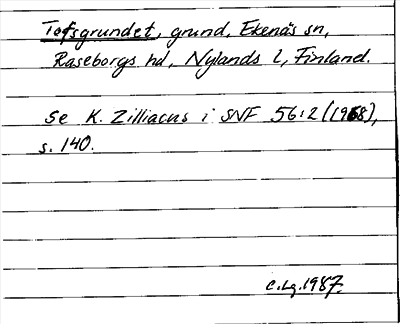 Tofsgrundet, grund, Ekenäs sn,
Raseborgs hd, Nylands l, Finland.
Se K. Zilliacus i SNF 56:2 (1968),
s. 140.
C.Lg. 1987.